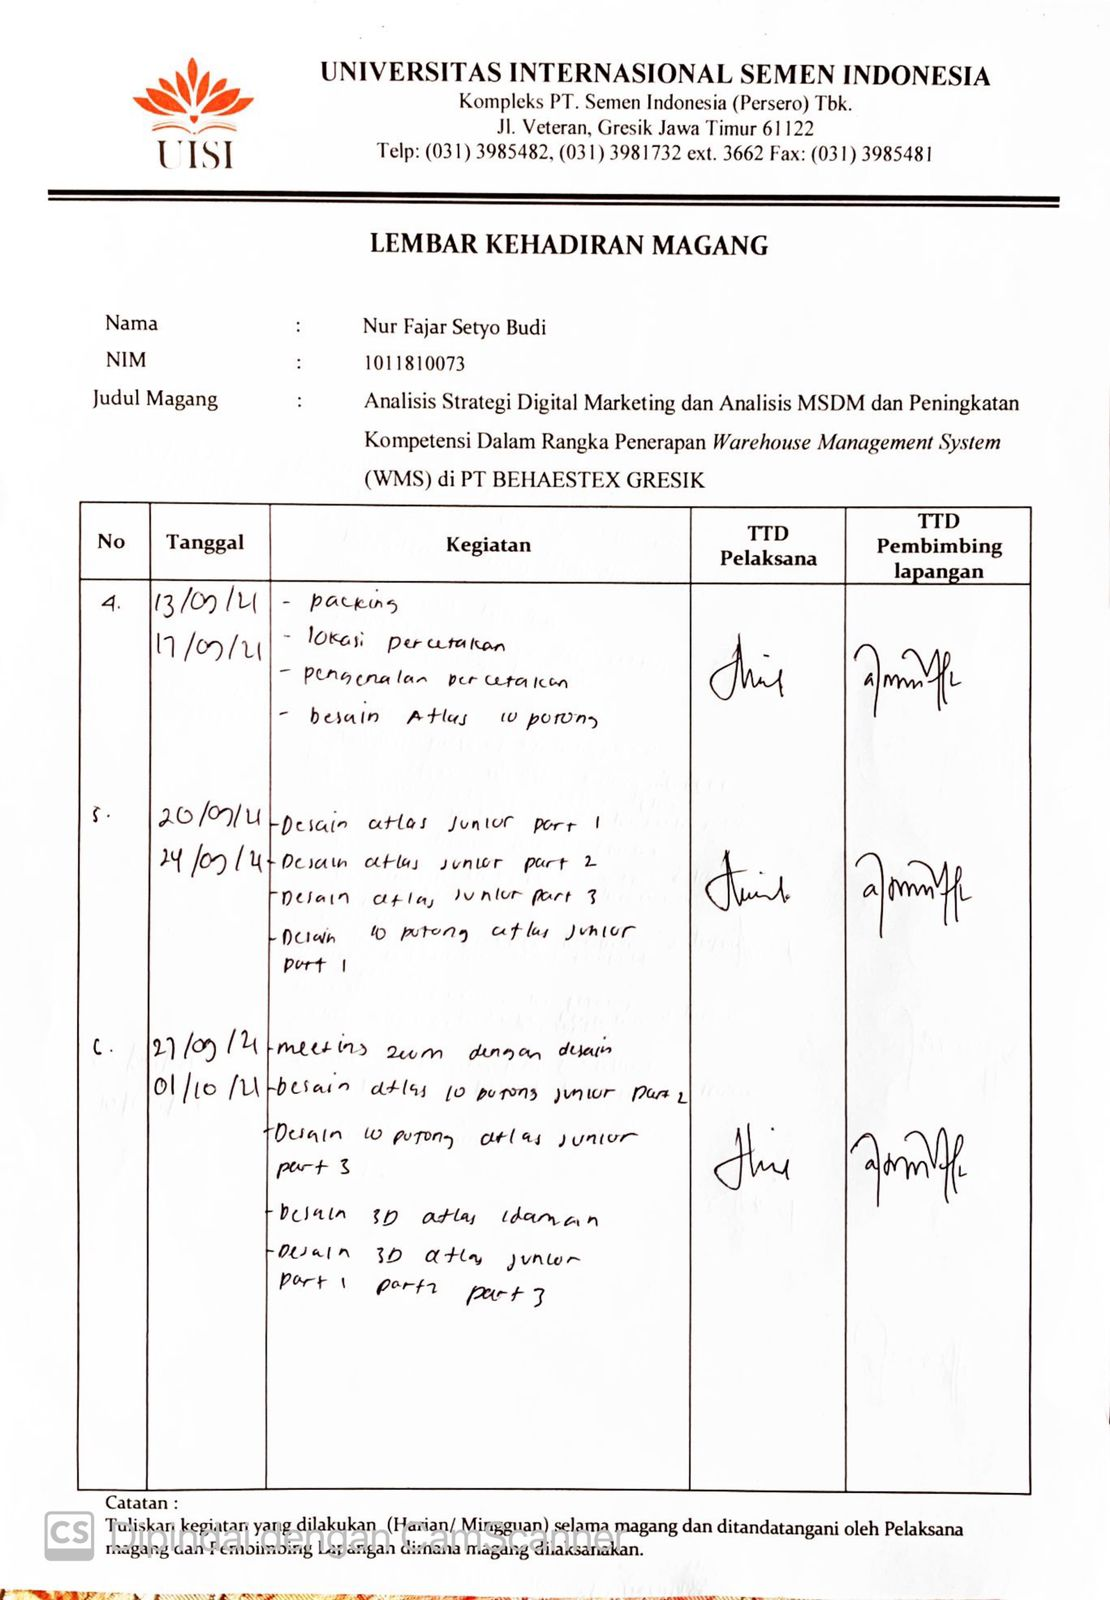 UISI
UNIVERSITAS INTERNASIONAL SEMEN INDONESIA
Kompleks PT. Semen Indonesia (Persero) Tbk.
Jl. Veteran, Gresik Jawa Timur 61122
Telp: (031) 3985482, (031) 3981732 ext. 3662 Fax: (031) 3985481
LEMBAR KEHADIRAN MAGANG
Nama : Nur Fajar Setyo Budi
NIM : 1011810073
Judul Magang : Analisis Strategi Digital Marketing dan Analisis MSDM dan Peningkatan
Kompetensi Dalam Rangka Penerapan Warehouse Management System
(WMS) di PT BEHAESTEX GRESIK
No Tanggal Kegiatan TTD Pelaksana TTD Pembimbing lapangan
4. 13/09/21 - packing
17/09/21 - lokasi percetakan
- pengenalan percetakan
- Desain Atlas 10 potong
5. 20/09/21 - Desain atlas junior part 1
24/09/21 - Desain atlas junior part 2
- Desain atlas junior part 3
- Desain 10 potong atlas junior
part 1
6. 27/09/21 - meeting zoom dengan desain
01/10/21 - Desain atlas 10 potong junior part 2
- Desain 10 potong atlas junior
part 3
- Desain 3D atlas idaman
- Desain 3D atlas junior
part 1 part 2 part 3
Catatan :
Tuliskan kegiatan yang dilakukan (Harian/ Mingguan) selama magang dan ditandatangani oleh Pelaksana
magang dan Pembimbing Lapangan dimana magang dilaksanakan.
CS Dipindai dengan CamScanner